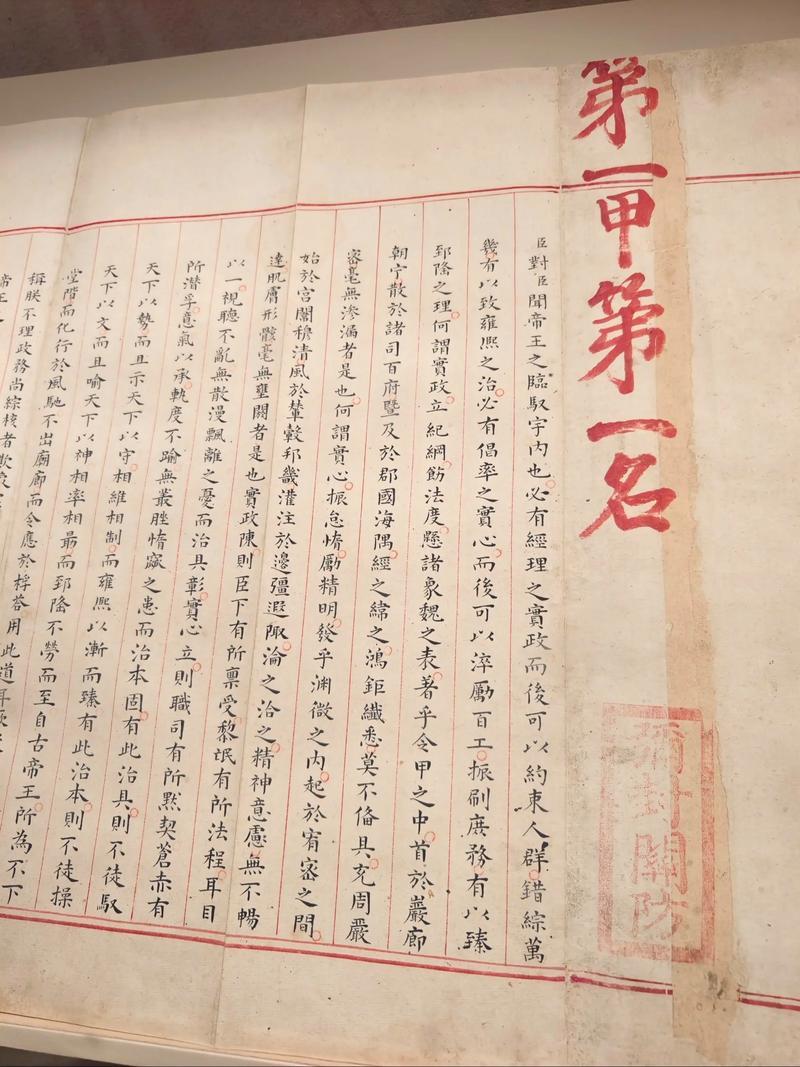 第一甲第一名
彌封關防
臣對臣聞帝王之臨馭宇内也必有經理之實政而後可以約束人群錯綜萬
幾有以致雍熙之治必有倡率之實心而後可以淬勵百工振刷庶務有以臻
郅隆之理何謂實政立紀綱飭法度懸諸象魏之表著乎令甲之中首於巖廊
朝宁散於諸司百府暨及於郡國海隅經之緯之鴻鉅纖悉莫不俻具充周嚴
密毫無滲漏者是也何謂實心振怠惰勵精明發乎淵微之内起於宥密之間
始於宫闈穆清風於輦轂邦畿灌注於邊疆遐陬淪之洽之精神意慮無不暢
達肌膚形骸毫無壅閼者是也實政陳則臣下有所禀受黎氓有所法程耳目
以一視聽不亂無散漫飄離之憂而治具彰實心立則職司有所默契蒼赤有
所潛孚意氣以承軌度不踰無叢脞惰窳之患而治本固有此治具則不徒馭
天下以勢而且示天下以守相維相制而雍熙以漸而臻有此治本則不徒操
天下以文而且喻天下以神相率相最而郅隆不勞而至自古帝王所為不下
堂階而化行於風馳不出廟廊而令應於桴荅用此道耳
稱朕不理政務尚綜核者欺
帝王